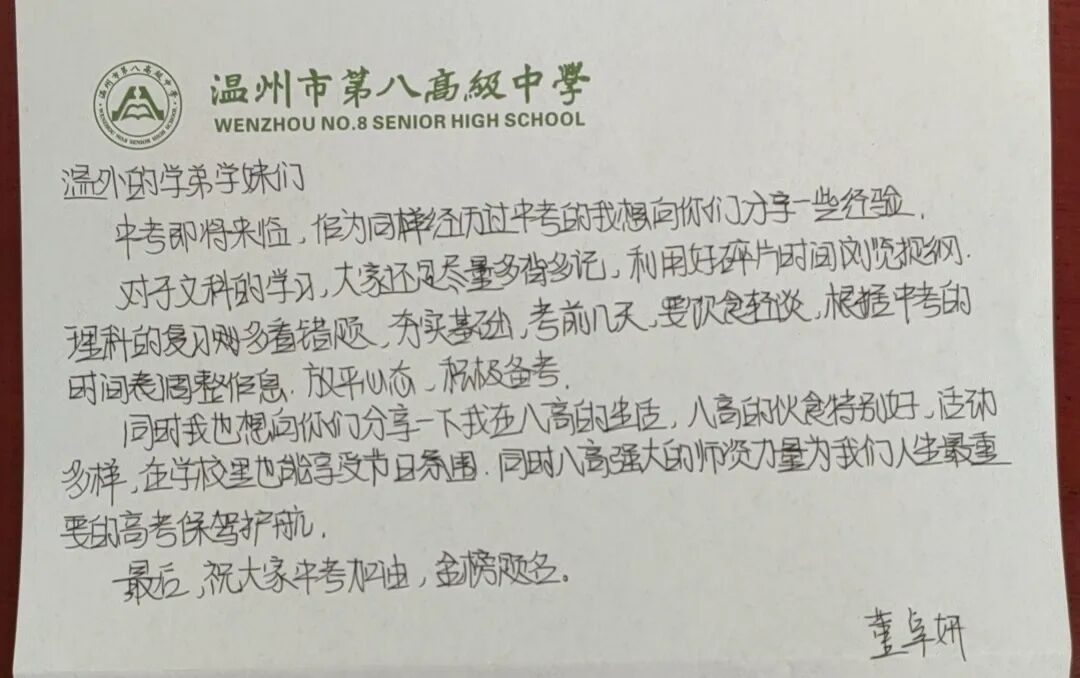 温州市第八高级中学
WENZHOU NO.8 SENIOR HIGH SCHOOL
温州市第八高级中学
WENZHOU NO.8 SENIOR HIGH SCHOOL
温外的学弟学妹们
中考即将来临，作为同样经历过中考的我想向你们分享一些经验.
对于文科的学习，大家还是尽量多背多记，利用好碎片时间浏览提纲.
理科的复习则多看错题，夯实基础，考前几天，要饮食轻淡，根据中考的
时间表调整作息.放平心态，积极备考.
同时我也想向你们分享一下我在八高的生活，八高的伙食特别好，活动
多样，在学校里也能享受节日氛围.同时八高强大的师资力量为我们人生最重
要的高考保驾护航.
最后，祝大家中考加油，金榜题名。
董卓妍